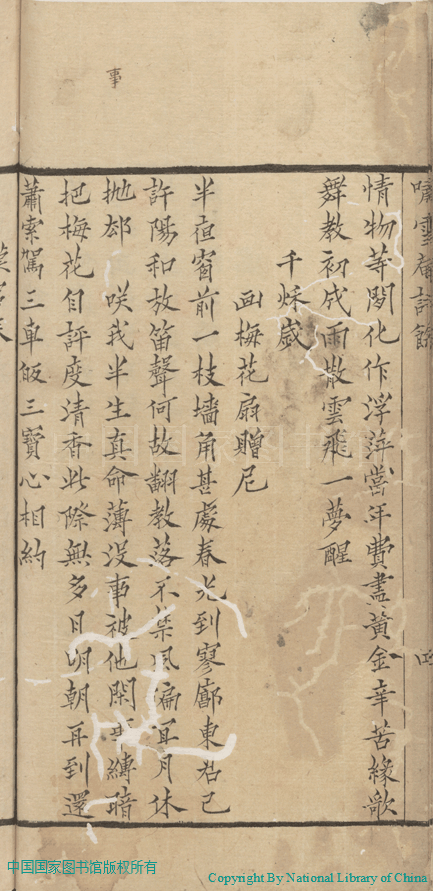 嘯雪庵詩餘 四
情物等閒化作浮萍當年費盡黃金辛苦緣歌
舞教初成雨散雲飛一夢醒
千秌歲
画梅花扇贈尼
半夜窗前一枝墻角甚處春光到寥廓東君已
許陽和放笛聲何故翻教落不禁風偏宜月休
拋却 咲我半生真命薄沒事被他閑事縛暗
把梅花自評度清香此際無多日明朝再到還
蕭索駕三車皈三寶心相約
事
中国国家图书馆版权所有
Copyright By National Library of China